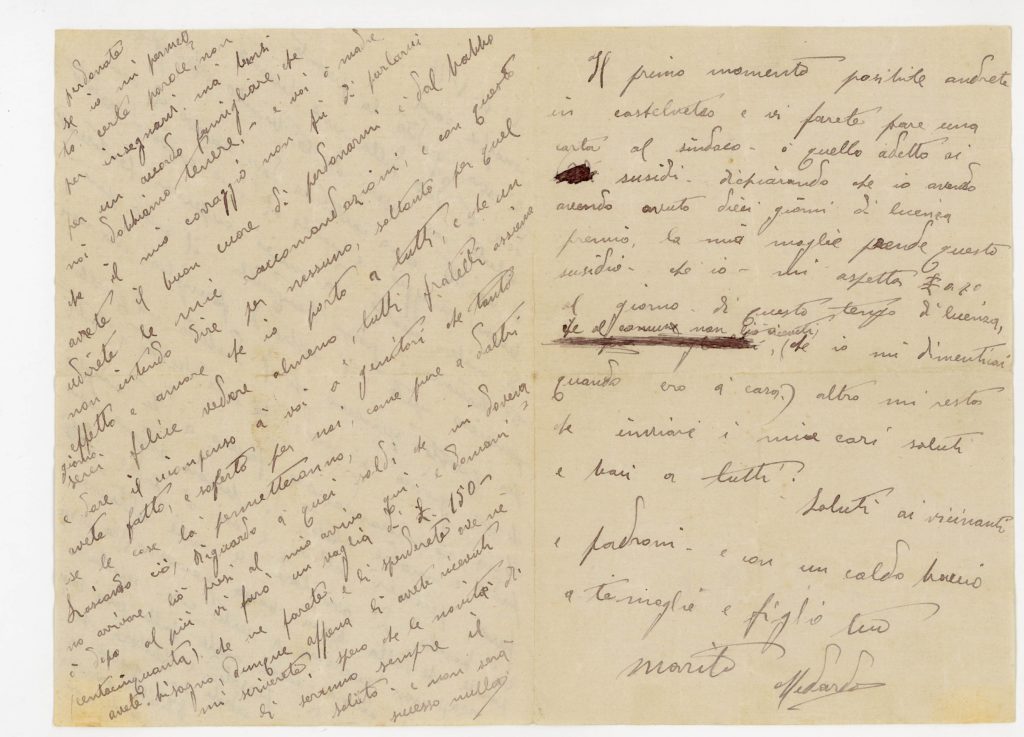 perdonate
se io mi permet
to certe parole, non
per insegnarvi. ma bensi
per un accordo famigliare, che
noi dobbiamo tenere! e voi o madre
che il mio coraggio non fù di parlarvi
avrete il buon cuore di perdonarmi e dal babbo
udirete le mie raccomandazioni. e con questo
non intendo dire per nessuno, soltanto per quel
effetto e amore che io porto a tutti, e che un
giorno
serei felice vedere almeno, tutti fratelli assieme
e dare il ricompenso à voi o' genitori che tanto
avete fatto, e soferto per noi, come pure a d'altri
se le cose la permetteranno,
Lasciando ciò, Riguardo a' quei soldi che mi doveva
no arivare, liò presi al mio arrivo qui, e domani
ò dopo al più vi farò un vaglia di £. 150
(centocinquanta), che ne farete, e li spenderete ove ne
avete bisogno, dunque appena li avete ricevuti
mi scriverete, spero che le novità di
li seranno sempre il
saluto. e non serà
sucesso nulla
Il primo momento posibile andrete
in castelvetro e vi farete fare una
carta al sindaco - ò quello adetto ai
susidi. dichiarando che io avendo
avendo avuto dieci giorni di licenza
premio, la mia moglie prende questo
susidio. che io - mi aspetta £ 0,70
al giorno. di questo tempo di licenza,
se al comune non
(che io mi dimenticai
quando ero a' casa.) altro mi resta
che inviare i miei cari saluti
e baci a tutti!
Saluti ai vicinanti
e padroni - e con un caldo bacio
a te moglie e figlio
tuo
marito Medardo